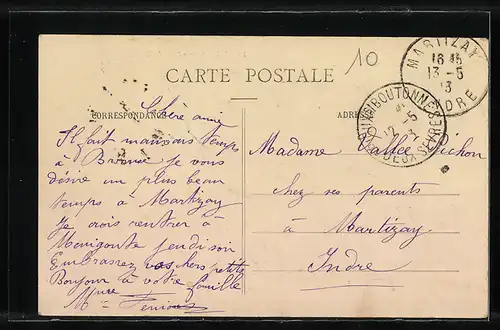 10
CARTE POSTALE
MARTIZAY
16 45
13 - 5
13
INDRE
BRIOUX S BOUTONNE
12 - 5
DEUX SEVRES
CORRESPONDANCE
Chère amie
Il fait mauvais temps
à Brioux je vous
désire un plus beau
temps à Martizay
Je crois rentrer à
Ménigoute jeudi soir
Embrassez vos chers petits
Bonjour à votre famille
Mme
ADRESSE
Madame Vallée Pichon
chez ses parents
à Martizay
Indre